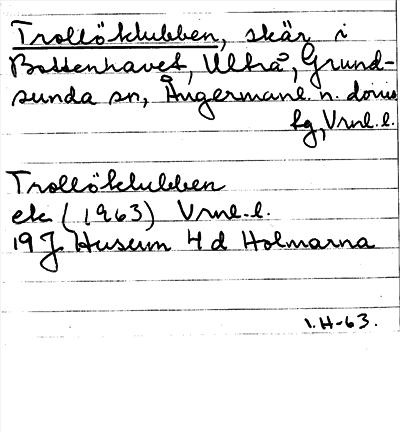 Trollöklubben, skär i
Bottenhavet, Ulvö, Grund-
sunda sn, Ångermanl. n. doms
fg, Vrnl. l.
Trollöklubben
ek (1963) Vrnl. l.
19 J Husum 4 d Holmarna
1.H-63.